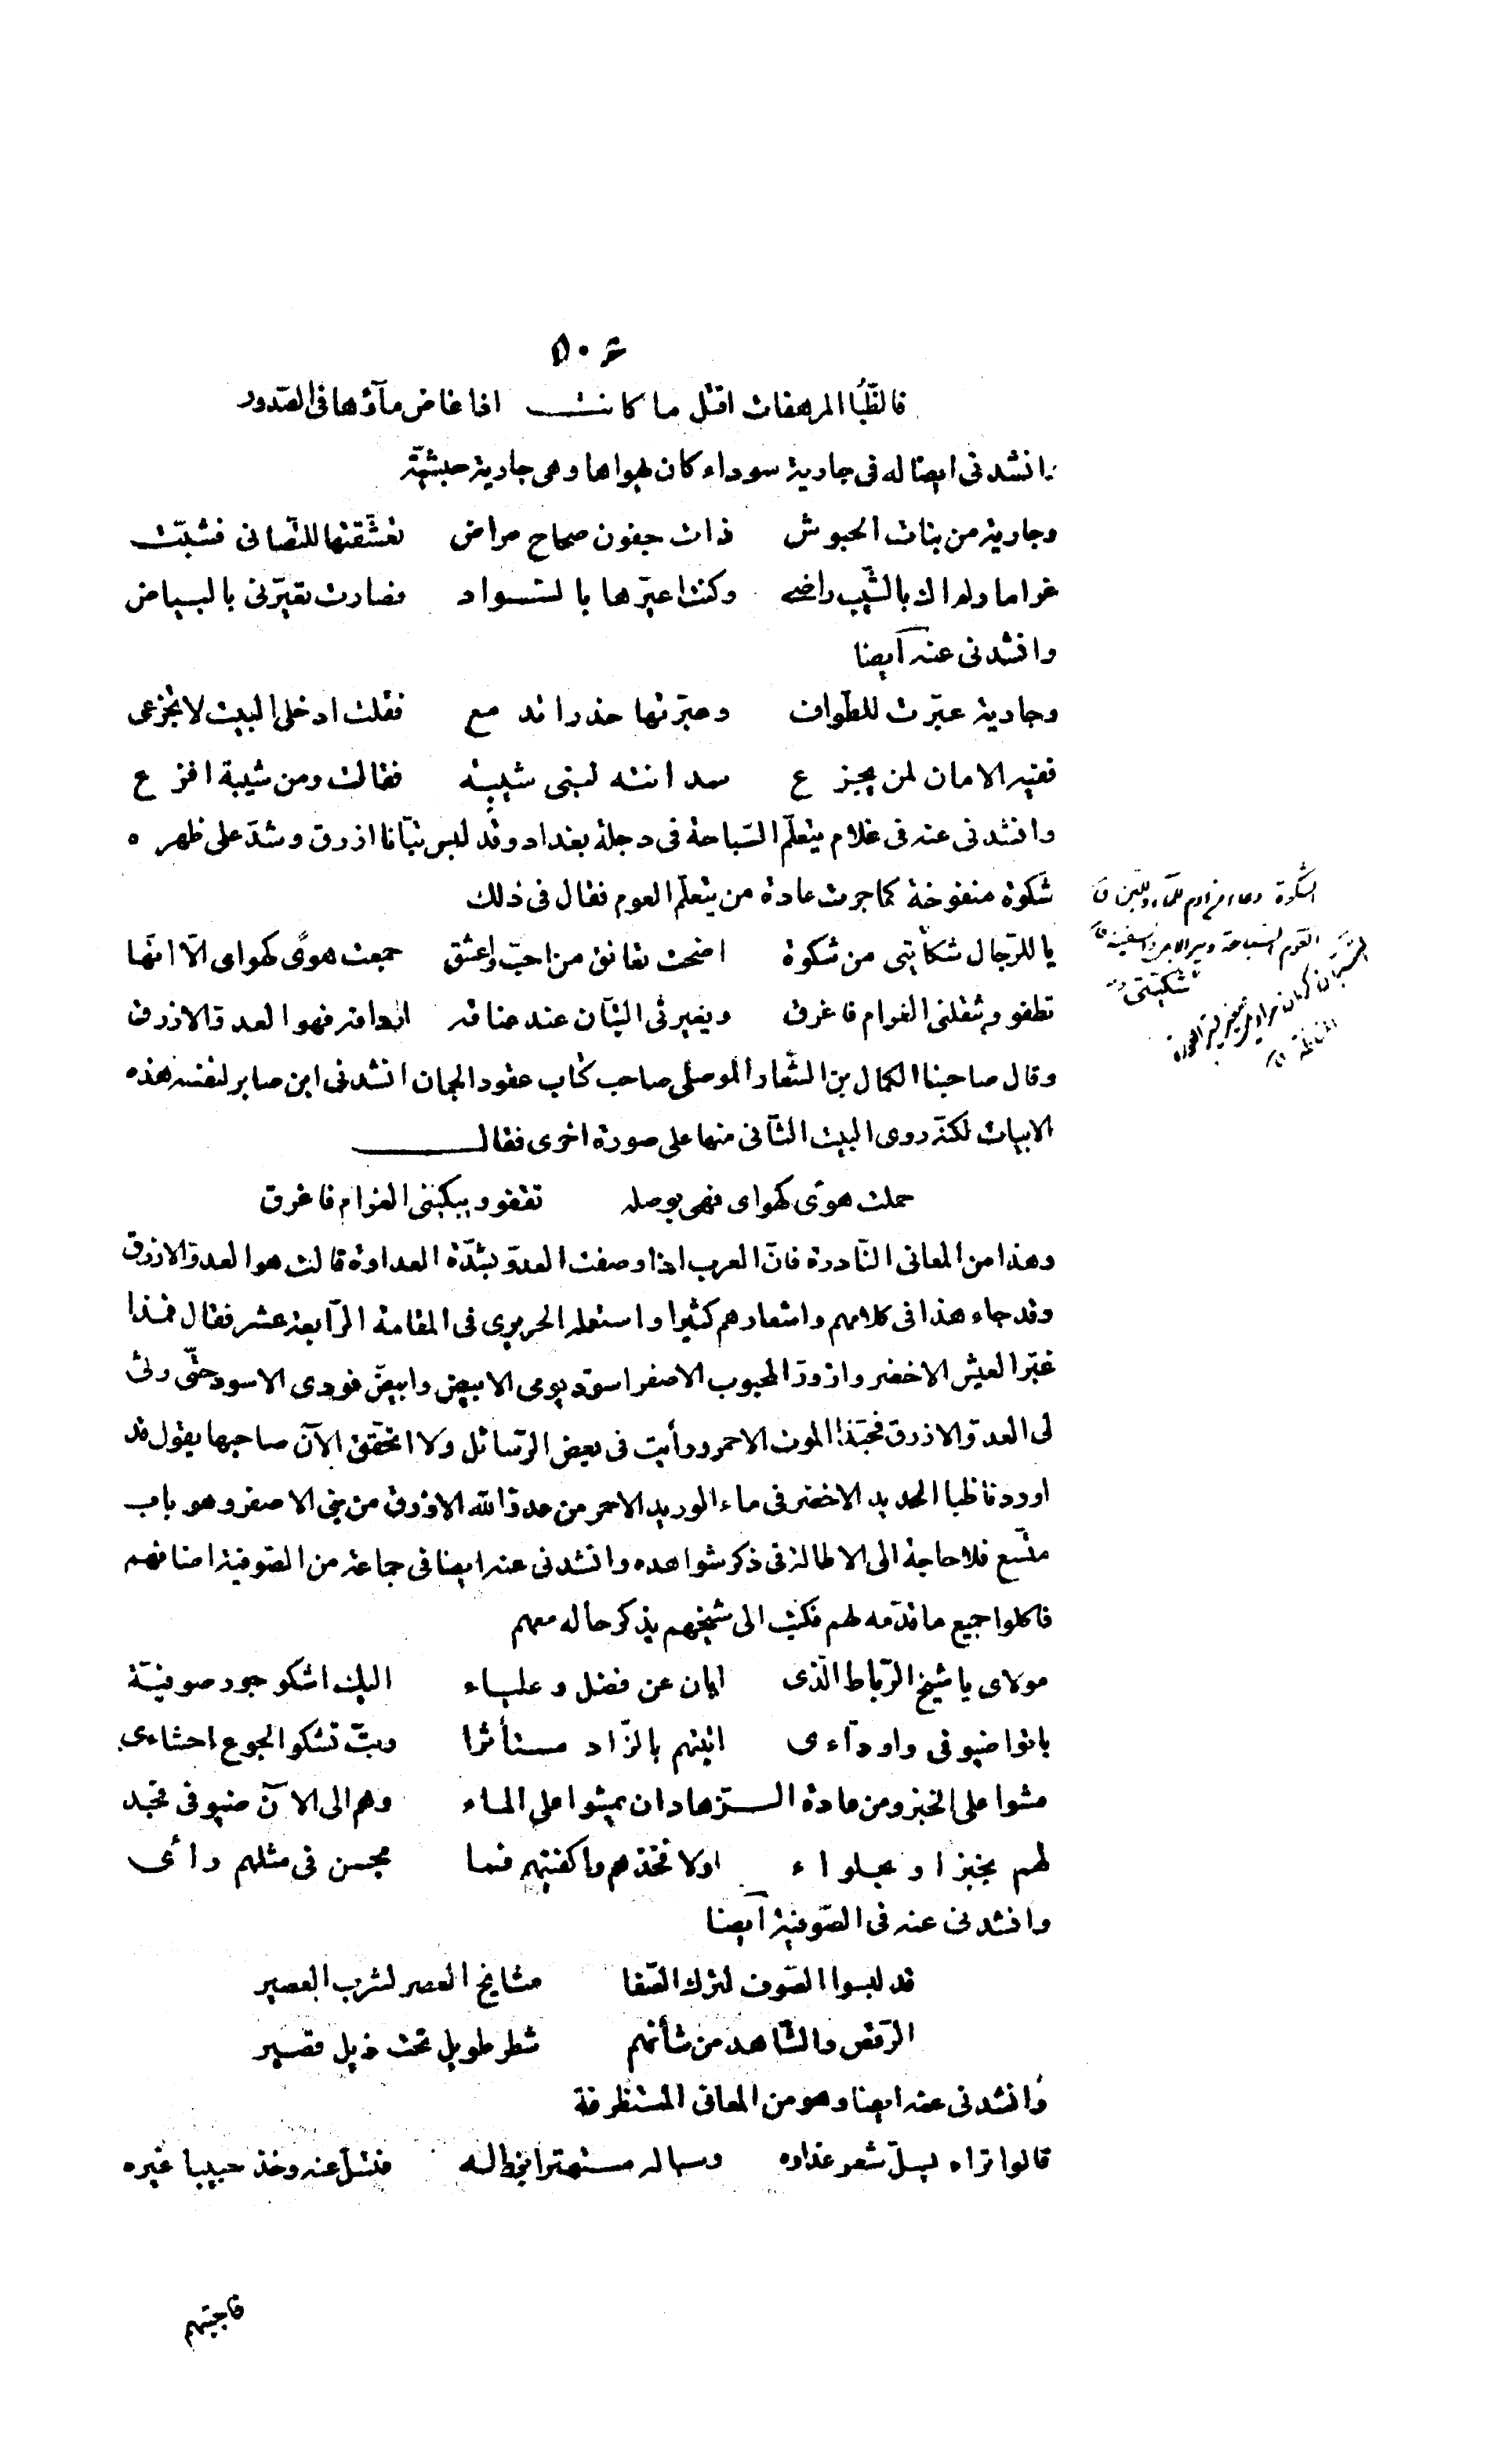 ۵۰۶
فالظُّبا المرهفات اقتل ما كانت    اذا غاض مآؤها فى الصّدور
وانشدنى ايضا له فى جارية سوداء كان يهواها وهى جارية حبشيّة
وجارية من بنات الحبوش    ذات جفون صحاح مراض    تعشّقتها للتّصابى فشبّت
غراما ولم اك بالشّيب راضى    وكنت اعيّرها بالسّواد    فصارت تعيّرنى بالبياض
وانشدنى عنه أيضا
وجارية عبرت للطّواف    وعبرتها حذرا تدمع    فقلت ادخلى البيت لا تجزعى
ففيه الامان لمن يجزع    سدانته لبنى شيبة    فقالت ومن شيبة افزع
وانشدنى عنه فى غلام يتعلّم السّباحة فى دجلة بغداد وقد لبس تبّانا ازرق وشدّ على ظهره
شكوة منفوخة كما جرت عادة من يتعلّم العوم فقال فى ذلك
يا للرّجال شكايتى من شكوة    اضحت تعانق من احبّ واعشق    جمعت هوًى كهواى الّا انّها
تطفو ويثقلنى الغرام فاغرق    ويغيرنى التبّان عند عناقه    اردافه فهو العدوّ الازرق
وقال صاحبنا الكمال بن الشّعار الموصلى صاحب كتاب عقود الجمان انشدنى ابن صابر لنفسه هذه
الابيات لكنّه روى البيت الثّانى منها على صورة اخرى فقال
حملت هوًى كهواى فهى بوصله    تقفو ويبكينى الغرام فاغرق
وهذا من المعانى النّادرة فانّ العرب اذا وصفت العدوّ بشدّة العداوة قالت هو العدوّ الازرق
وقد جاء هذا فى كلامهم واشعارهم كثيرا واستعمله الحريرى فى المقامة الرّابعة عشر فقال فمذا
غبّر العيش الاخضر وازورّ المحبوب الاصفر اسودّ يومى الابيض وابيضّ فودى الاسود حتّى رثى
لى العدوّ الازرق فحبّذا الموت الاحمر ورأيت فى بعض الرّسائل ولا اتحقّق الآن صاحبها يقول قد
اوردنا ظبا الحديد الاخضر فى ماء الوريد الاحمر من عدوّ الله الازرق من بنى الاصفر وهو باب
متّسع فلا حاجة الى الاطالة فى ذكر شواهده وانشدنى عنه ايضا فى جماعة من الصّوفيّة اضافهم
فاكلوا جميع ما قدّمه لهم فكتب الى شيخهم يذكر حاله معهم
مولاى يا شيخ الرّباط الّذى    ابان عن فضل وعلياء    اليك اشكو جور صوفيّة
باتوا ضيوفى واودّآءى    اتيتهم بالزّاد مستأثرا    وبتّ تشكو الجوع احشاءى
مشوا على الخبز ومن عادة الـزّهاد ان يمشوا على الماء    وهم الى الآن ضيوفى فجد
لهم بخبز او بحلواء    اولا فخذهم واكفنيهم فما    يحسن فى مثلهم رأى
وانشدنى عنه فى الصّوفيّة أيضا
قد لبسوا الصّوف لترك الصّفا    مشايخ العصر لشرب العصير
الرّقص والشّاهد من شأنهم    شطر طويل تحت ذيل قصير
وانشدنى عنه ايضا وهو من المعانى المستظرفة
قالوا تراه يسلّ شعر عذاره    وسباله مستهترا بزواله    فتسلّ عنه وخذ حبيبا غيره
فاجبتهم
الشكوة وعاء من ادم للماء واللبن ق
العوم السباحة وسير الابل والسفينة ق
شكيتى